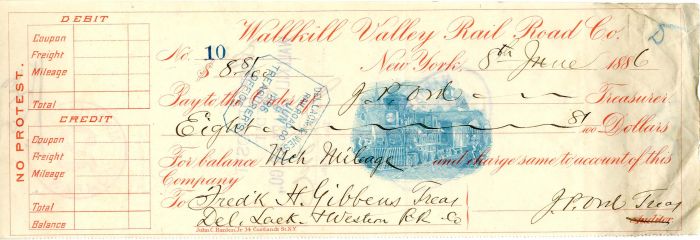 DEBIT
Coupon
Freight
Mileage
Total
CREDIT
Coupon
Freight
Mileage
Total
Balance
NO PROTEST.
Wallkill Valley Rail Road Co.
No. 10
New York, 8th June 1886
$ 8 81/100
Pay to the order of J. P. Ord Treasurer
Eight 81/100 Dollars
For balance Mch Mileage and charge same to account of this
Company
To Fred'k H. Gibbens Treas J. P. Ord Treas
Del. Lack. & Western R.R. Co Auditor
John C. Rankin, Jr. 34 Cortlandt St. N.Y.
DEL. LACK. & WEST.
RAILROAD CO.
JUN
TREASURER'S
OFFICE